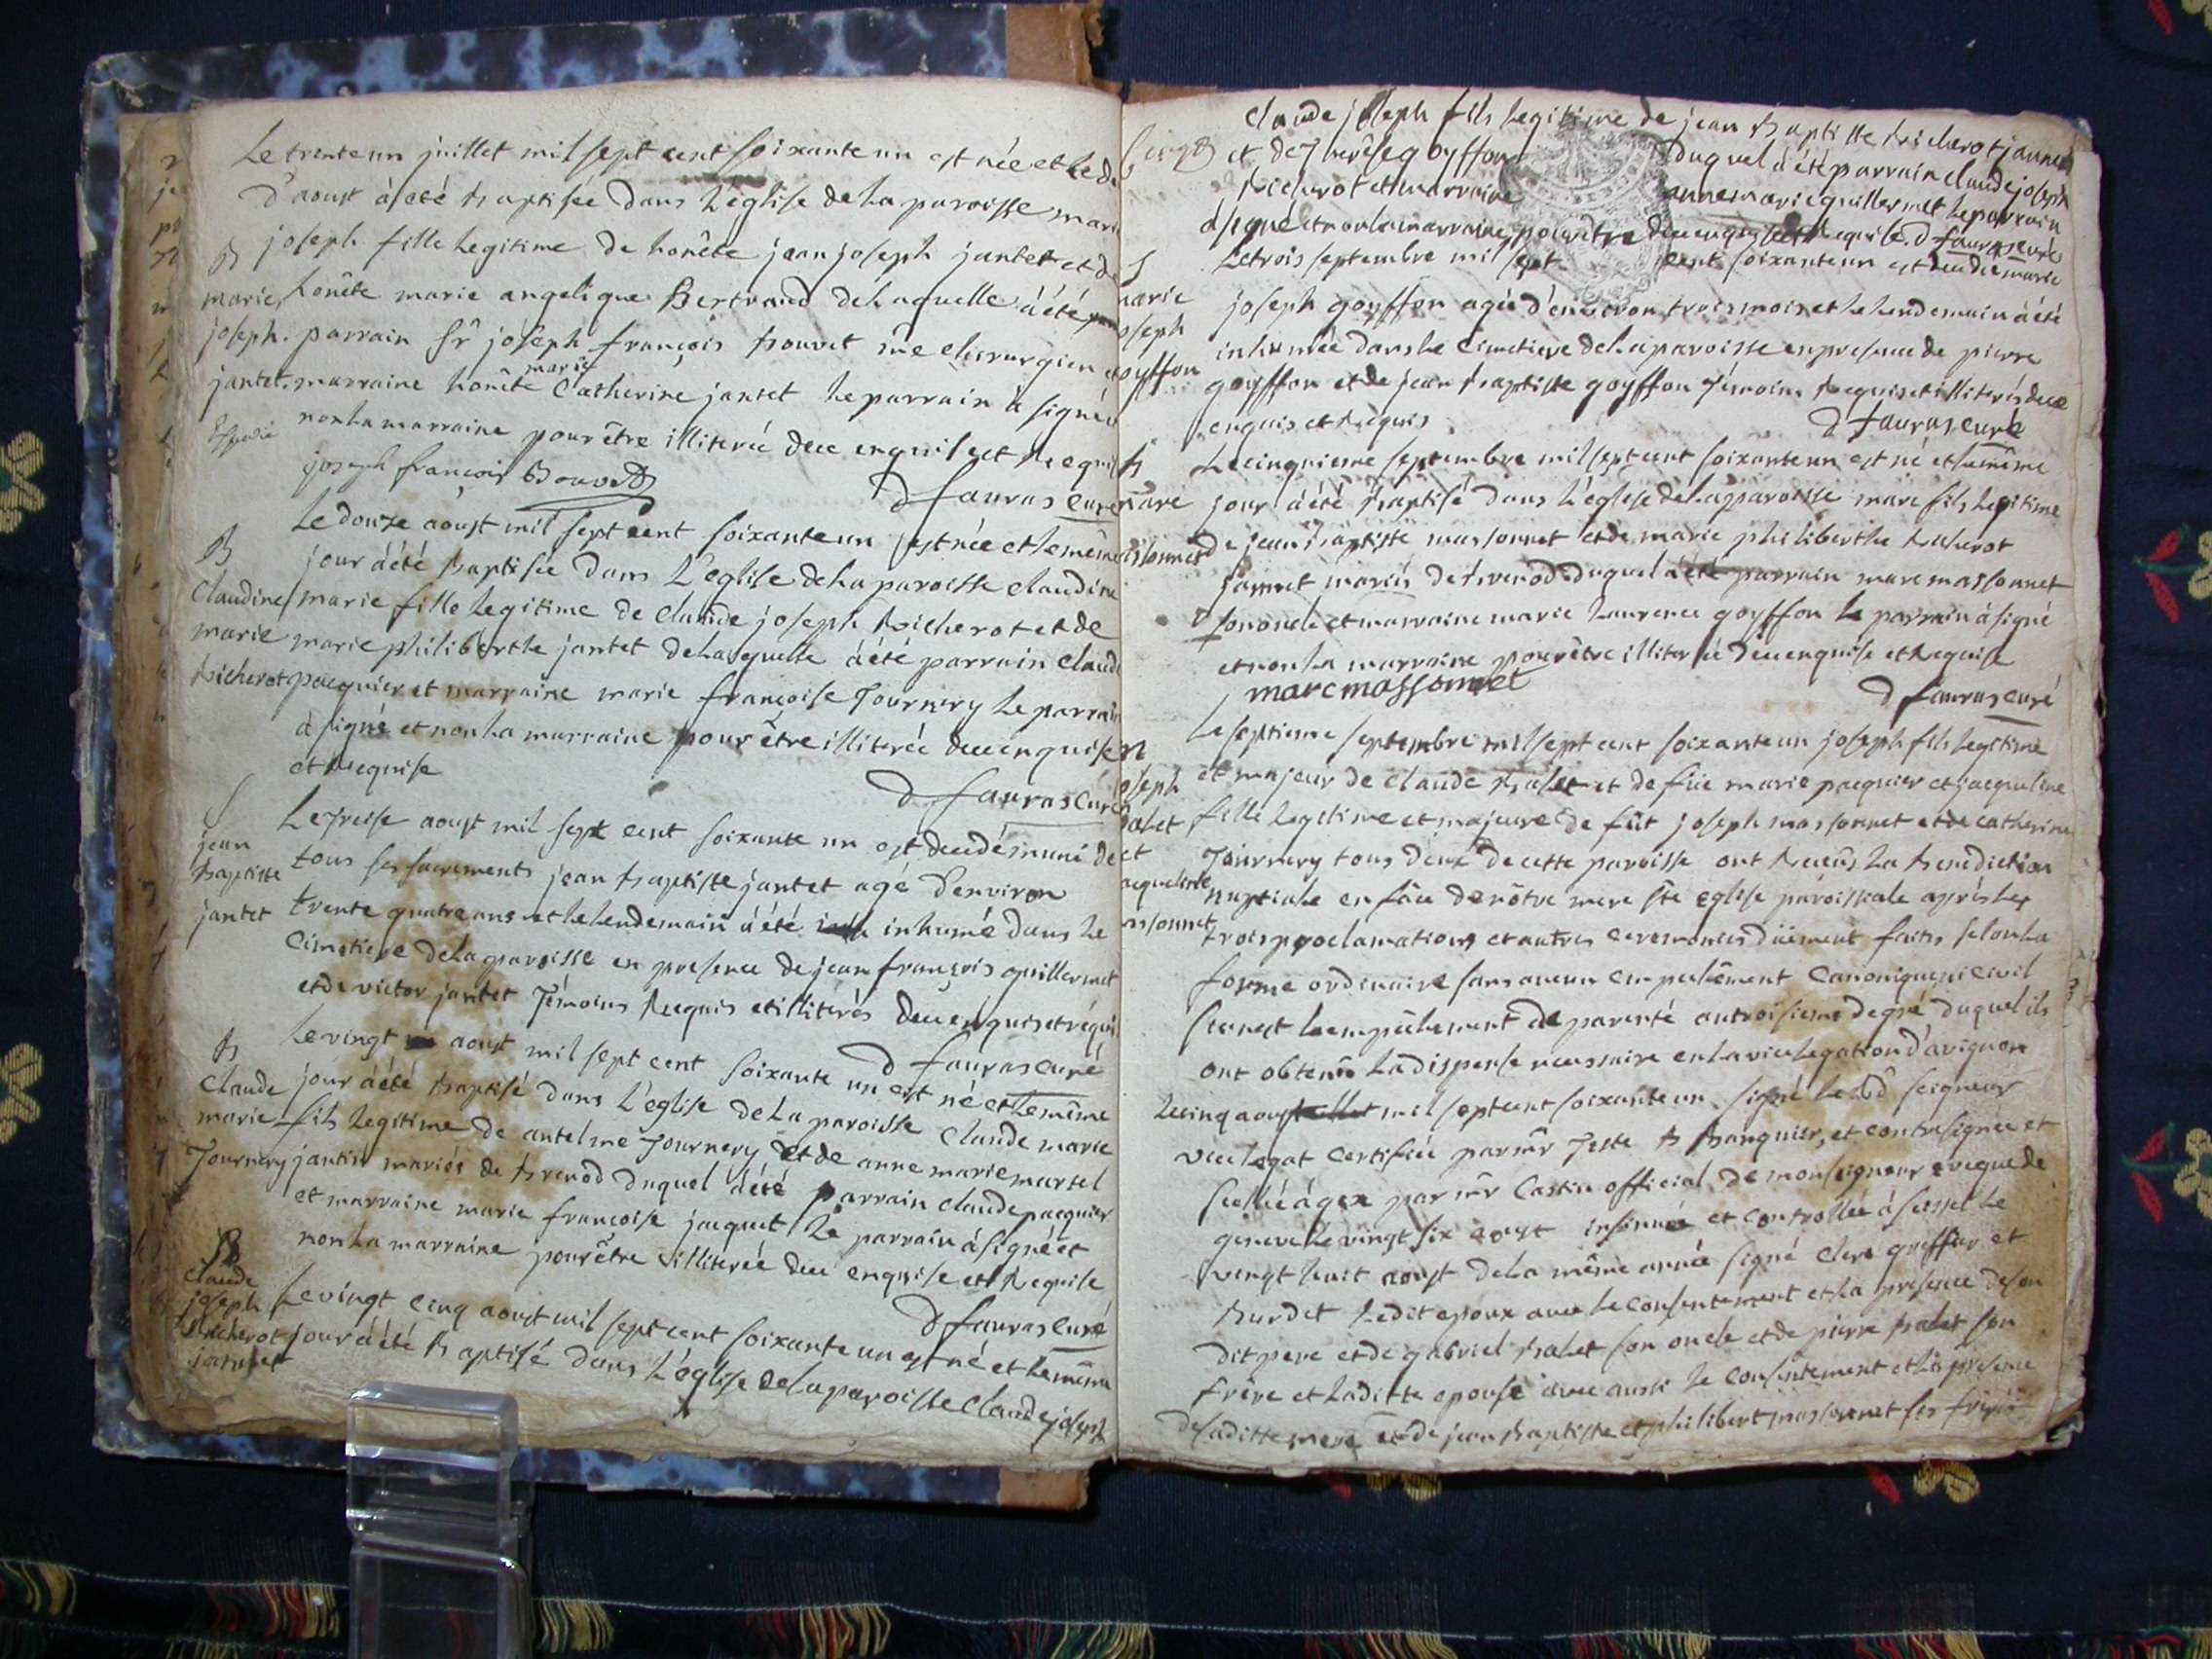 Le trente un juillet mil sept cent soixante un est née et le
d'aoust à eté baptisée dans L'eglise de La paroisse
B joseph fille Legitime de honête jean joseph jantet et de
marie honête marie angelique Bertrand de Laquelle à été
joseph. parrain sr joseph françois bouvet me chirurgien
jantet. marraine honête marie Catherine jantet Le parrain à signé
non La marraine pour être illiterée de ce enquise et Requise
joseph françois Bouvet
D favras curé
Le douze aoust mil sept cent soixante un est née et le même
B jour à été baptisée dans L'eglise de La paroisse claudine
Claudine marie fille Legitime de claude joseph Richerot et de
marie marie philiberthe jantet de Laquelle à été parrain claude
Richerot pacquier et marraine marie françoise Tournery Le parrain
à signé et non La marraine pour être illiterée de ce enquise
et Requise
D favras curé
S Le Treise aoust mil sept cent soixante un est decedé muni de
jean
baptiste tous ses sacrements jean baptiste jantet agé d'environ
jantet trente quatre ans et Le Lendemain à été inhumé dans Le
Cimetiere de La paroisse en presence de jean françois guillermet
et de victor jantet Témoins Requis et illiterés de ce enquis et requis
D favras curé
B Le vingt aoust mil sept cent soixante un est né et Le même
Claude jour à été baptisé dans L'eglise de La paroisse Claude marie
marie fils Legitime de antelme Tournery et de anne marie martel
Tournery jantin mariés de brenod duquel à été parrain claude pacquier
et marraine marie françoise jacquet Le parrain à signé et
non La marraine pour être illiterée de ce enquise et Requise
D favras curé
B
Claude
joseph Le vingt cinq aoust mil sept cent soixante un est né et Le même
Richerot jour à été baptisé dans L'eglise de La paroisse Claude joseph
jannet
claude joseph fils Legitime de jean baptiste Richerot jannet
et de Therêse goyffon duquel à été parrain claude joseph
Richerot et marraine anne marie guillermet Le parrain
à signé et non La marraine pour être de ce enquise et Requise. D favras curé
S Le trois septembre mil sept cent soixante un est decedée marie
marie
joseph joseph goyffon agée d'environ trois mois et Le Lendemain à été
goyffon inhumée dans Le Cimetiere de La paroisse en presence de pierre
goyffon et de jean baptiste goyffon Témoins Requis et illiterés de ce
enquis et Requis
D favras curé
B Le cinquieme septembre mil sept cent soixante un est né et Le même
marc jour à été baptisé dans L'eglise de La paroisse marc fils Legitime
massonnet de jean baptiste massonnet et de marie philiberthe Richerot
jannet mariés de brenod duquel à été parrain marc massonnet
son oncle et marraine marie Laurence goyffon Le parrain à signé
et non La marraine pour être illiterée de ce enquise et Requise
marc massonnet
D favras curé
Le septieme septembre mil sept cent soixante un joseph fils Legitime
joseph et majeur de claude balet et de füe marie pacquier et jacqueline
balet fille Legitime et majeure de füt joseph massonnet et de catherine
et Tournery tous deux de cette paroisse ont Receus La Benediction
jacqueline nuptiale en face de nôtre mere ste eglise paroissiale après Les
massonnet trois proclamations et autres ceremonies düement faites selon La
forme ordinaire sans aucun empechement Canonique ni civil
si ce n'est L'empêchement de parenté au troisieme degré duquel ils
ont obtenu La dispense necessaire en La vice Legation d'avignon
Le cinq aoust mil sept cent soixante un signé Le dt seigneur
vice Legat certifiée par mr Teste banquier, et contresignée et
scellée à gex par mr Castin official de monseigneur eveque de
geneve Le vingt six aoust insinuée et controllée à seissel Le
vingt huit aoust de La même année signé Clerc greffier et
Burdet Ledit epoux avec Le consentement et La presence de son
dit pere et de gabriel balet son oncle et de pierre balet son
frère et Laditte epouse avec aussi Le consentement et La presence
de saditte mere et de jean baptiste et philibert massonnet ses freres